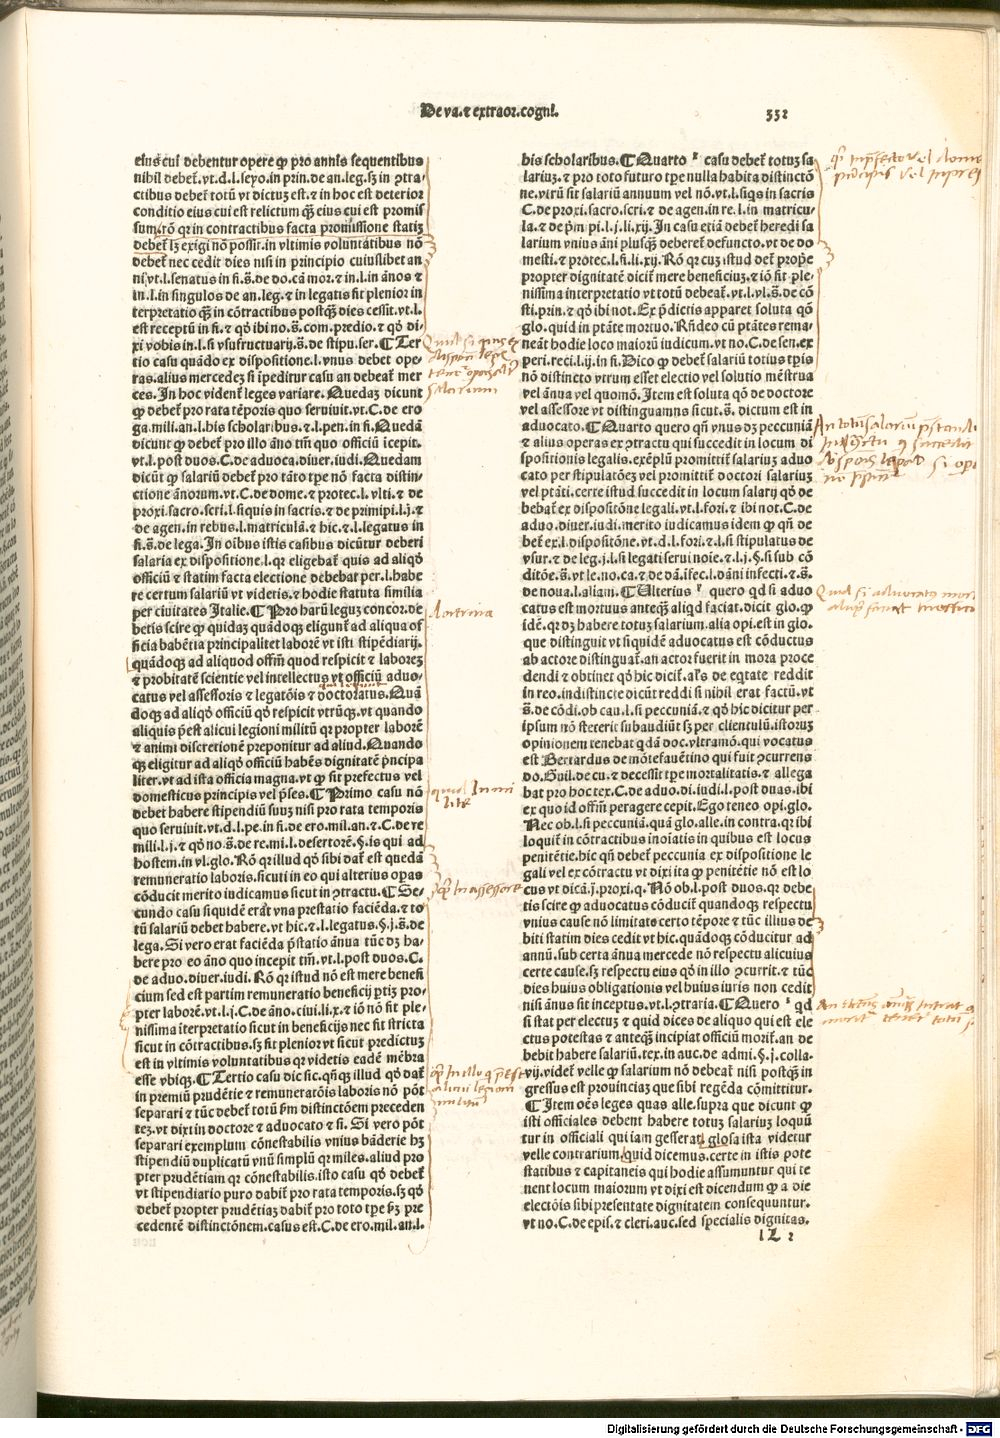 De va. ⁊ extraor. cogni.
332
eius cui debentur opere ꝙ pro annis sequentibus
nihil debet̄. vt. d. l. seyo. in prin. de an. leg. sꝫ in ꝯtra⸗
ctibus debet̄ totū vt dictuꝫ est. ⁊ in hoc est deterior
conditio eius cui est relictum q̄ꝫ eius cui est promis
sum. rō qꝛ in contractibus facta promissione statiꝫ
debet̄ lꝫ exigi nō possit. in vltimis voluntatibus nō
debet̄ nec cedit dies nisi in principio cuiuslibet an
ni. vt. l. senatus in fi. s̄. de do. cā mor. ⁊ in. l. in ānos ⁊
in. l. in singulos de an. leg. ⁊ in legatis fit plenior in
terpretatio q̄ꝫ in cōtractibus postq̄ꝫ dies cessit. vt. l.
est receptū in fi. ⁊ qđ ibi no. s̄. com. predio. ⁊ qđ di⸗
xi vobis in. l. si vsufructuary. s̄. de stipu. ser. ¶ Ter
tio casu quādo ex dispositione. l. vnus debet ope⸗
ras. alius mercedeꝫ si īpeditur casu an debeat̄ mer
ces. In hoc vident̄ leges variare. Quedaꝫ dicunt
ꝙ debet̄ pro rata tēporis quo seruiuit. vt. C. de ero
ga. mili. an. l. his scholaribus. ⁊. l. pen. in fi. Quedā
dicunt ꝙ debet̄ pro illo āno tm̄ quo officiū icepit.
vt. l. post duos. C. de aduoca. diuer. iudi. Quedam
dicūt ꝙ salariū debet̄ pro tāto tꝑe nō facta distin⸗
ctione ānorum. vt. C. de dome. ⁊ protec. l. vlti. ⁊ de
proxi. sacro. scri. l. si quis in sacris. ⁊ de primipi. l. j. ⁊
de agen. in rebus. l. matriculā. ⁊ hic. ⁊. l. legatus in
fi. s̄. de lega. In oībus istis casibus dicūtur deberi
salaria ex dispositione. l. qꝛ eligebat̄ quis ad aliqđ
officiū ⁊ statim facta electione debebat per. l. habe
re certum salariū vt videris. ⁊ hodie statuta similia
per ciuitates Italie. ¶ Pro harū leguꝫ concor. de⸗
betis scire ꝙ quidaꝫ quādoqꝫ eligunt̄ ad aliqua of
ficia habētia principalitet̄ laborē vt isti stipēdiarij.
quādoqꝫ ad aliquod offm̄ quod respicit ⁊ laboreꝫ
⁊ probitatē scientie vel intellectus vt officiū aduo⸗
catus vel assessoris ⁊ legatōis ⁊ doctoratus. Quā
doqꝫ ad aliqđ officiū qđ respicit vtrūqꝫ. vt quando
aliquis p̄est alicui legioni militū qꝛ propter laborē
⁊ animi discretionē preponitur ad aliud. Quando
qꝫ eligitur ad aliqđ officiū habēs dignitatē p̄ncipa
liter. vt ad ista officia magna. vt ꝙ sit prefectus vel
domesticus principis vel p̄ses. ¶ Primo casu nō
debet habere stipendiū suuꝫ nisi pro rata temporis
quo seruiuit. vt. d. l. pe. in fi. de ero. mil. an. ⁊. C. de re
mili. l. j. ⁊ qđ no. s̄. de re. mi. l. desertorē. §. is qui ad
hostem. in vl. glo. Rō qꝛ illud qđ sibi dat̄ est quedā
remuneratio laboris. sicuti in eo qui alterius oꝑas
cōducit merito iudicamus sicut in ꝯtractu. ¶ Se⸗
cundo casu siquidē erat̄ vna prestatio faciēda. ⁊ to
tū salariū debet habere. vt hic. ⁊. l. legatus. §. j. s̄. de
lega. Si vero erat faciēda p̄statio ānua tūc dꝫ ha⸗
bere pro eo āno quo incepit tm̄. vt. l. post duos. C.
de aduo. diuer. iudi. Rō qꝛ istud nō est mere benefi
cium sed est partim remuneratio beneficij ꝑtiꝫ pro⸗
pter laborē. vt. l. j. C. de āno. ciui. li. x. ⁊ iō nō fit ple⸗
nissima īterpretatio sicut in beneficijs nec fit stricta
sicut in cōtractibus. sꝫ fit plenior vt sicut predictuꝫ
est in vltimis voluntatibus qꝛ videtis eadē mēbra
esse vbiqꝫ. ¶ Tertio casu dic sic. qn̄qꝫ illud qđ dat̄
in premiū prudētie ⁊ remuneratōis laboris nō pōt
separari ⁊ tūc debet̄ totū ẜm distinctōem preceden
teꝫ. vt dixi in doctore ⁊ aduocato ⁊ sī. Si vero pōt
separari exemplum cōnestabilis vnius bāderie hꝫ
stipendiū duplicatū vnū simplū qꝛ miles. aliud pro
pter prudētiam qꝛ cōnestabilis. isto casu qđ debet̄
vt stipendiario puro dabit̄ pro rata temporis. sꝫ qđ
debet̄ propter prudētiaꝫ dabit̄ pro toto tꝑe ẜꝫ pre
cedentē distinctōnem. casus est. C. de ero. mil. an. l.
his scholaribus. ¶ Quarto casu debet̄ totuꝫ sa
lariuꝫ. ⁊ pro toto futuro tꝑe nulla habita distinctō
ne. vtrū sit salariū annuum vel nō. vt. l. siqs in sacris
C. de proxi. sacro. scri. ⁊ de agen. in re. l. in matricu⸗
la. ⁊ de p̄m pi. l. j. li. xij. In casu etiā debet̄ heredi sa
larium vnius āni plusq̄ꝫ deberet̄ defuncto. vt de do
mesti. ⁊ protec. l. fi. li. xij. Rō qꝛ cuꝫ istud det̄ prop̄e
propter dignitatē dicit̄ mere beneficiuꝫ. ⁊ iō fit ple⸗
nissima interpretatio vt totū debeat̄. vt. l. vl. s̄. de cō
sti. prin. ⁊ qđ ibi not. Ex p̄dictis apparet soluta qō
glo. quid in ptāte mortuo. Rn̄deo cū ptātes rema⸗
neāt hodie loco maiorū iudicum. vt no. C. de sen. ex
peri. reci. l. ij. in fi. Dico ꝙ debet̄ salariū totius tꝑis
nō distincto vtrum esset electio vel solutio mēstrua
vel ānua vel quomō. Item est soluta qō de doctore
vel assessore vt distinguamns sicut. s̄. dictum est in
aduocato. ¶ Quarto quero qn̄ vnus dꝫ peccuniā
⁊ alius operas ex ꝯtractu qui succedit in locum di
spositionis legalis. exēplū promittit̄ salariuꝫ aduo
cato per stipulatōeꝫ vel promittit̄ doctori salariuꝫ
vel ptāti. certe istud succedit in locum salarij qđ de
bebat̄ ex dispositōne legali. vt. l. fori. ⁊ ibi not. C. de
aduo. diuer. iudi. merito iudicamus idem ꝙ qn̄ de⸗
bet̄ ex. l. dispositōne. vt. d. l. fori. ⁊. l. si stipulatus de
vsur. ⁊ de leg. j. l. si legati serui noīe. ⁊. l. j. §. si sub cō
ditōe. s̄. vt le. no. ca. ⁊ de dā. īfec. l. dāni infecti. ⁊. s̄.
de noua. l. aliam. ¶ Ulterius quero qđ si aduo
catus est mortuus anteq̄ꝫ aliqd faciat. dicit glo. ꝙ
idē. qꝛ dꝫ habere totuꝫ salarium. alia opi. est in glo.
que distinguit vt siquidē aduocatus est cōductus
ab actore distinguat̄. an actor fuerit in mora proce
dendi ⁊ obtinet qđ hic dicit̄. al's de eq̄tate reddit
in reo. indistincte dicūt reddi si nihil erat factū. vt
s̄. de cōdi. ob cau. l. si peccuniā. ⁊ qđ hic dicitur per
ipsum nō steterit subaudiūt sꝫ per clientulū. istoruꝫ
opinionem tenebat qdā doc. vltramō. qui vocatus
est Bertardus de mōtefauētino qui fuit ꝯcurrens
do. Guil. de cu. ⁊ decessit tꝑe mortalitatis. ⁊ allega
bat pro hoc tex. C. de aduo. di. iudi. l. post duas. ibi
ex quo id offm̄ peragere cepit. Ego teneo opi. glo.
Nec ob. l. si peccuniā. quā glo. alle. in contra. qꝛ ibi
loquit̄ in cōtractibus inoīatis in quibus est locus
penitētie. hic qn̄ debet̄ peccunia ex dispositione le
gali vel ex cōtractu vt dixi ita ꝙ penitētie nō est lo
cus vt dicā. j. proxi. q. Nō ob. l. post duos. qꝛ debe
tis scire ꝙ aduocatus cōducit̄ quandoqꝫ respectu
vnius cause nō limitato certo tēpore ⁊ tūc illius de
biti statim dies cedit vt hic. quādoqꝫ cōducitur ad
annū. sub certa ānua mercede nō respectu alicuius
certe cause. sꝫ respectu eius qđ in illo ꝯcurrit. ⁊ tūc
dies huius obligationis vel huius iuris non cedit
nisi ānus sit inceptus. vt. l. ꝯtraria. ¶ Quero qđ
si stat per electuꝫ ⁊ quid dices de aliquo qui est ele
ctus potestas ⁊ anteq̄ꝫ incipiat officiū morit̄. an de
bebit habere salariū. tex. in auc. de admi. §. j. colla⸗
vij. videt̄ velle ꝙ salarium nō debeat̄ nisi postq̄ꝫ in
gressus est prouinciaꝫ que sibi regēda cōmittitur.
¶ Item oēs leges quas alle. supra que dicunt ꝙ
isti officiales debent habere totuꝫ salariuꝫ loquū
tur in officiali qui iam gesserat. glosa ista videtur
velle contrarium. quid dicemus. certe in istis pote
statibus ⁊ capitaneis qui hodie assumuntur qui te
nent locum maiorum vt dixi est dicendum ꝙ a die
electōis sibi presentate dignitatem consequuntur.
vt no. C. de epis. ⁊ cleri. auc. sed specialis dignitas.
Doctrina
Digitalisierung gefördert durch die Deutsche Forschungsgemeinschaft - DFG